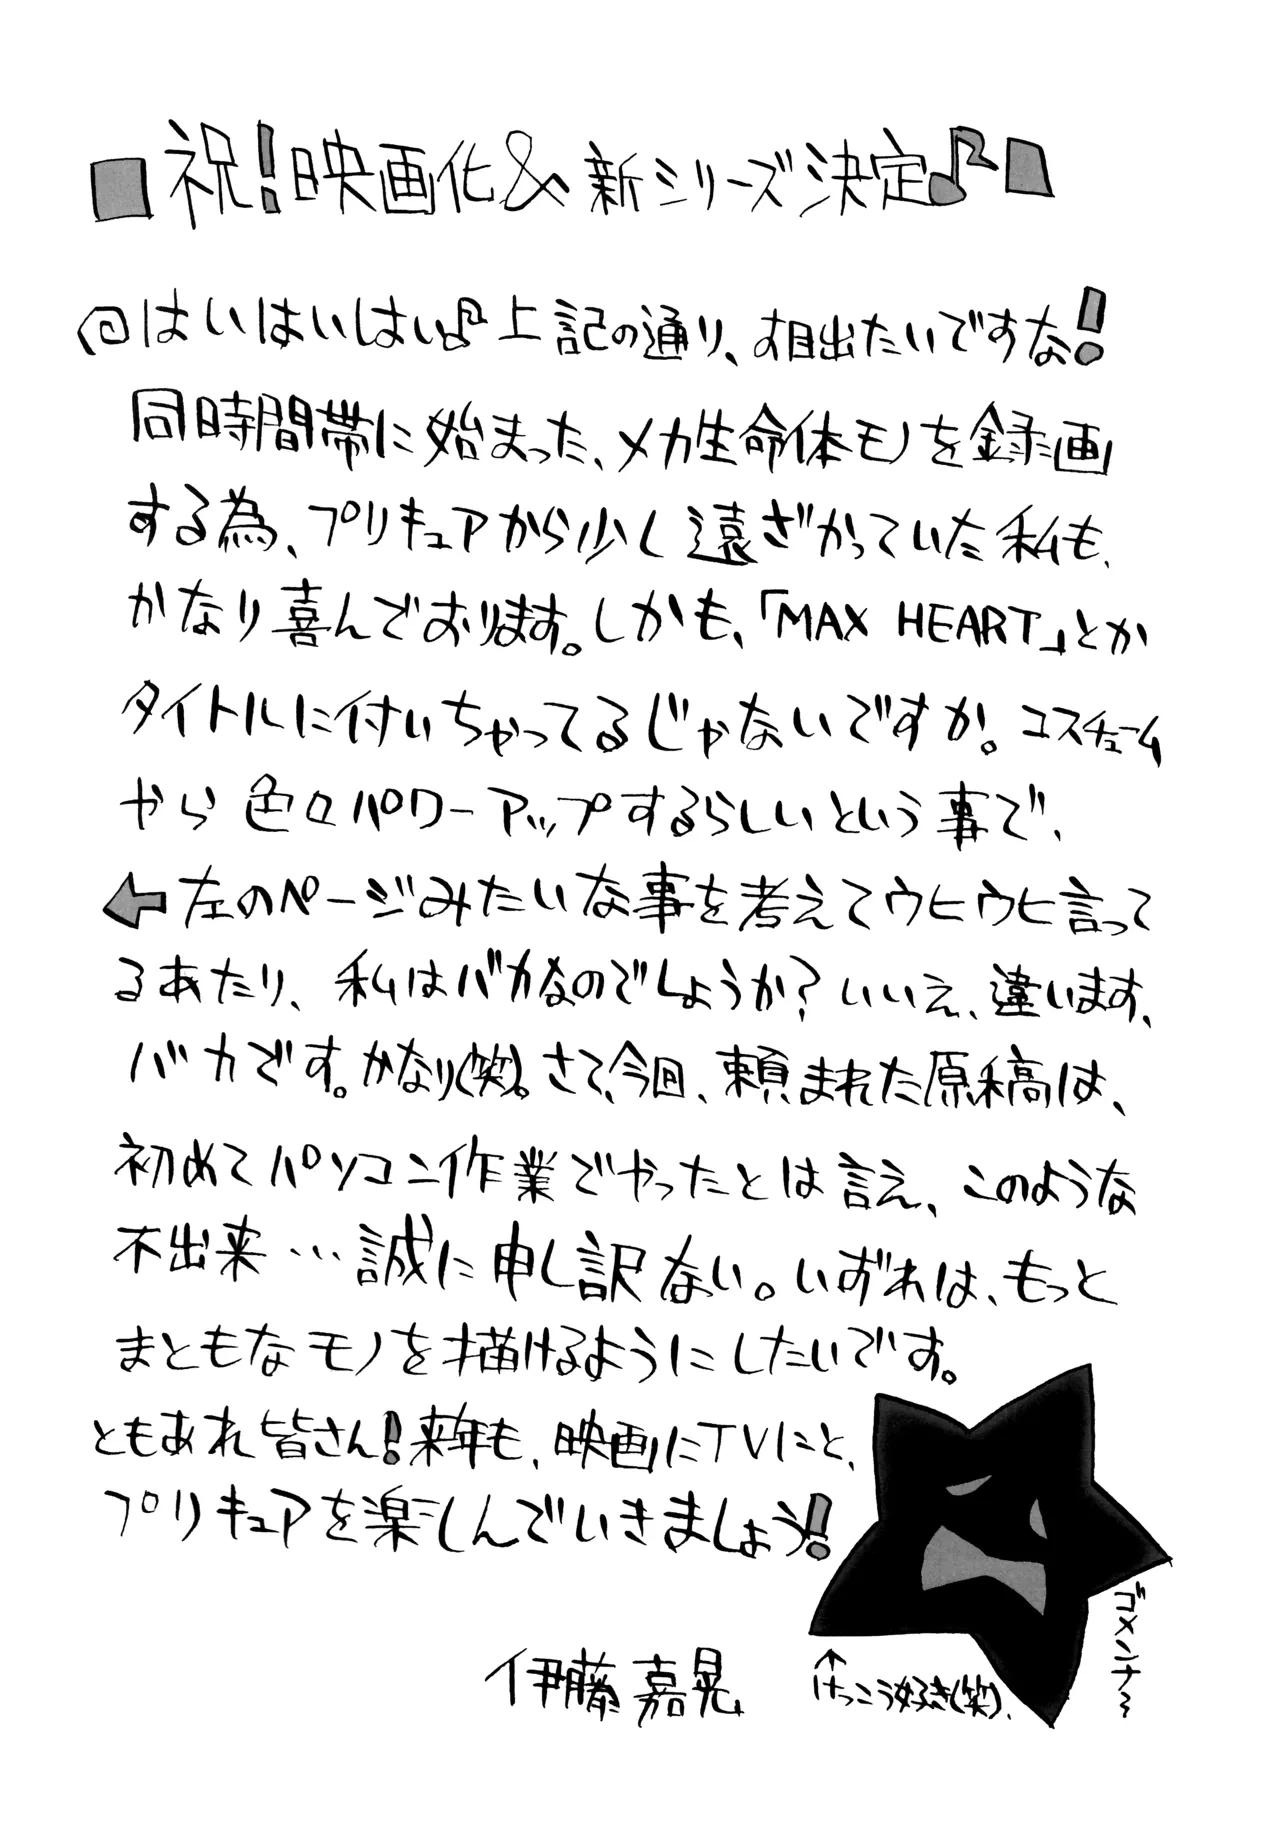 ■祝!映画化&新シリーズ決定♪■
@はいはいはい♪上記の通り、お目出たいですな!
同時間帯に始まった、メカ生命体モノを録画
する為、プリキュアから少し遠ざかっていた私も、
かなり喜んでおります。しかも、「MAX HEART」とか
タイトルに付いちゃってるじゃないですか。コスチューム
やら色々パワーアップするらしいという事で、
←左のページみたいな事を考えてウヒウヒ言って
るあたり、私はバカなのでしょうか?いいえ、違います、
バカです。かなり(笑)。さて、今回、頼まれた原稿は、
初めてパソコン作業でやったとは言え、このような
不出来…誠に申し訳ない。いずれは、もっと
まともなモノを描けるようにしたいです。
ともあれ皆さん!来年も、映画にTVにと、
プリキュアを楽しんでいきましょう!
ゴメンナ〜
↑けっこう好き(笑)、
伊藤嘉晃